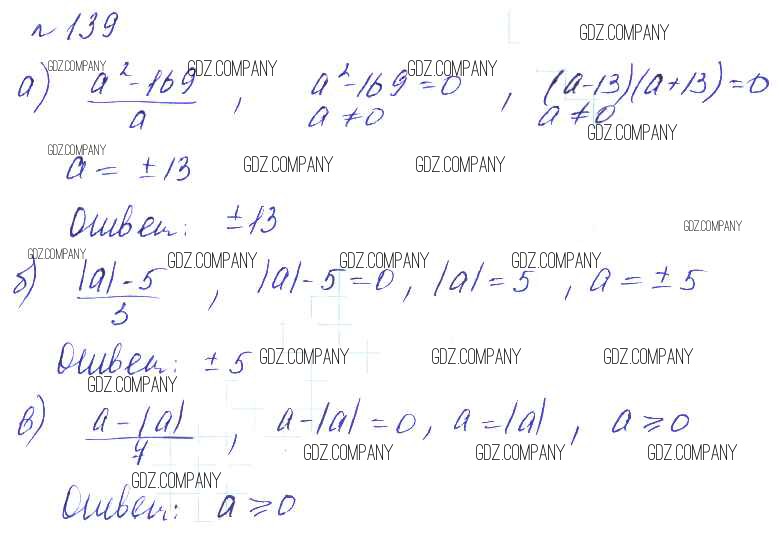 № 139
GDZ.COMPANY
а) (a² - 169)/a , a² - 169 = 0 , (a - 13)(a + 13) = 0
GDZ.COMPANY GDZ.COMPANY GDZ.COMPANY
a ≠ 0 a ≠ 0
GDZ.COMPANY
GDZ.COMPANY
a = ± 13 GDZ.COMPANY GDZ.COMPANY
Ответ: ± 13
GDZ.COMPANY
GDZ.COMPANY GDZ.COMPANY GDZ.COMPANY GDZ.COMPANY
б) (|a| - 5)/3 , |a| - 5 = 0, |a| = 5 , a = ± 5
Ответ: ± 5 GDZ.COMPANY GDZ.COMPANY GDZ.COMPANY
GDZ.COMPANY
в) (a - |a|)/7 , a - |a| = 0, a = |a| , a ≥ 0
GDZ.COMPANY GDZ.COMPANY GDZ.COMPANY
GDZ.COMPANY
Ответ: a ≥ 0